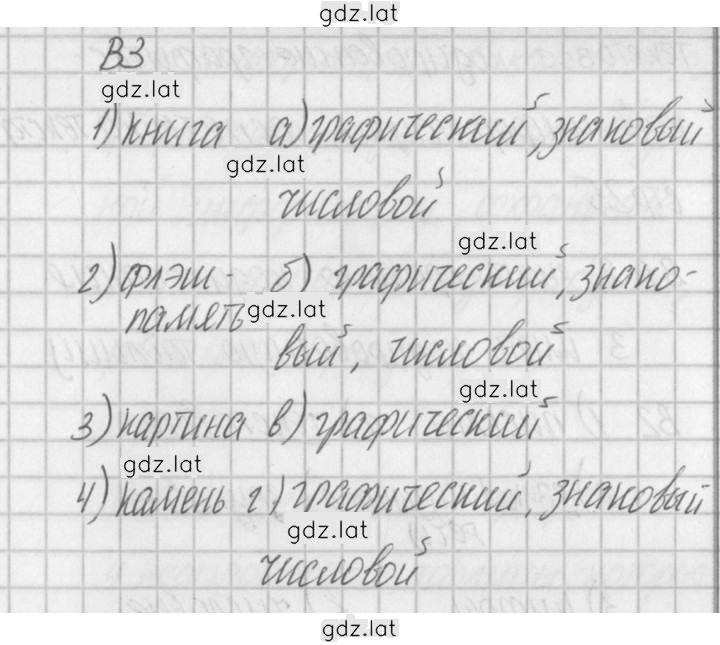 gdz.lat
В3
gdz.lat
1) книга а) графический, знаковый
gdz.lat
числовой
gdz.lat
2) флэш- б) графический, знако-
память gdz.lat
вый, числовой
gdz.lat
3) картина в) графический
gdz.lat
4) камень г) графический, знаковый
gdz.lat
числовой
gdz.lat